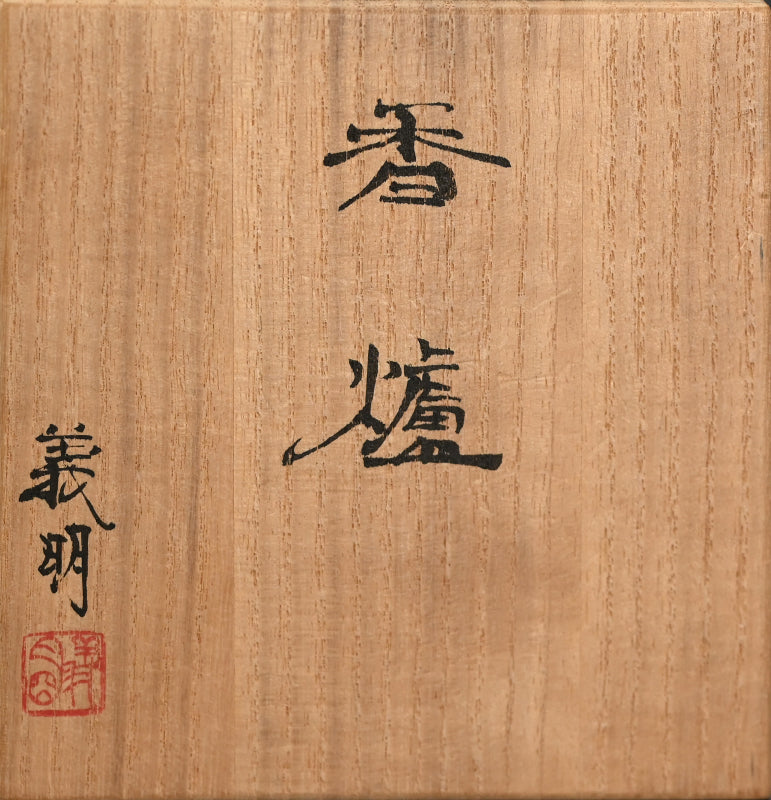 香爐
義明